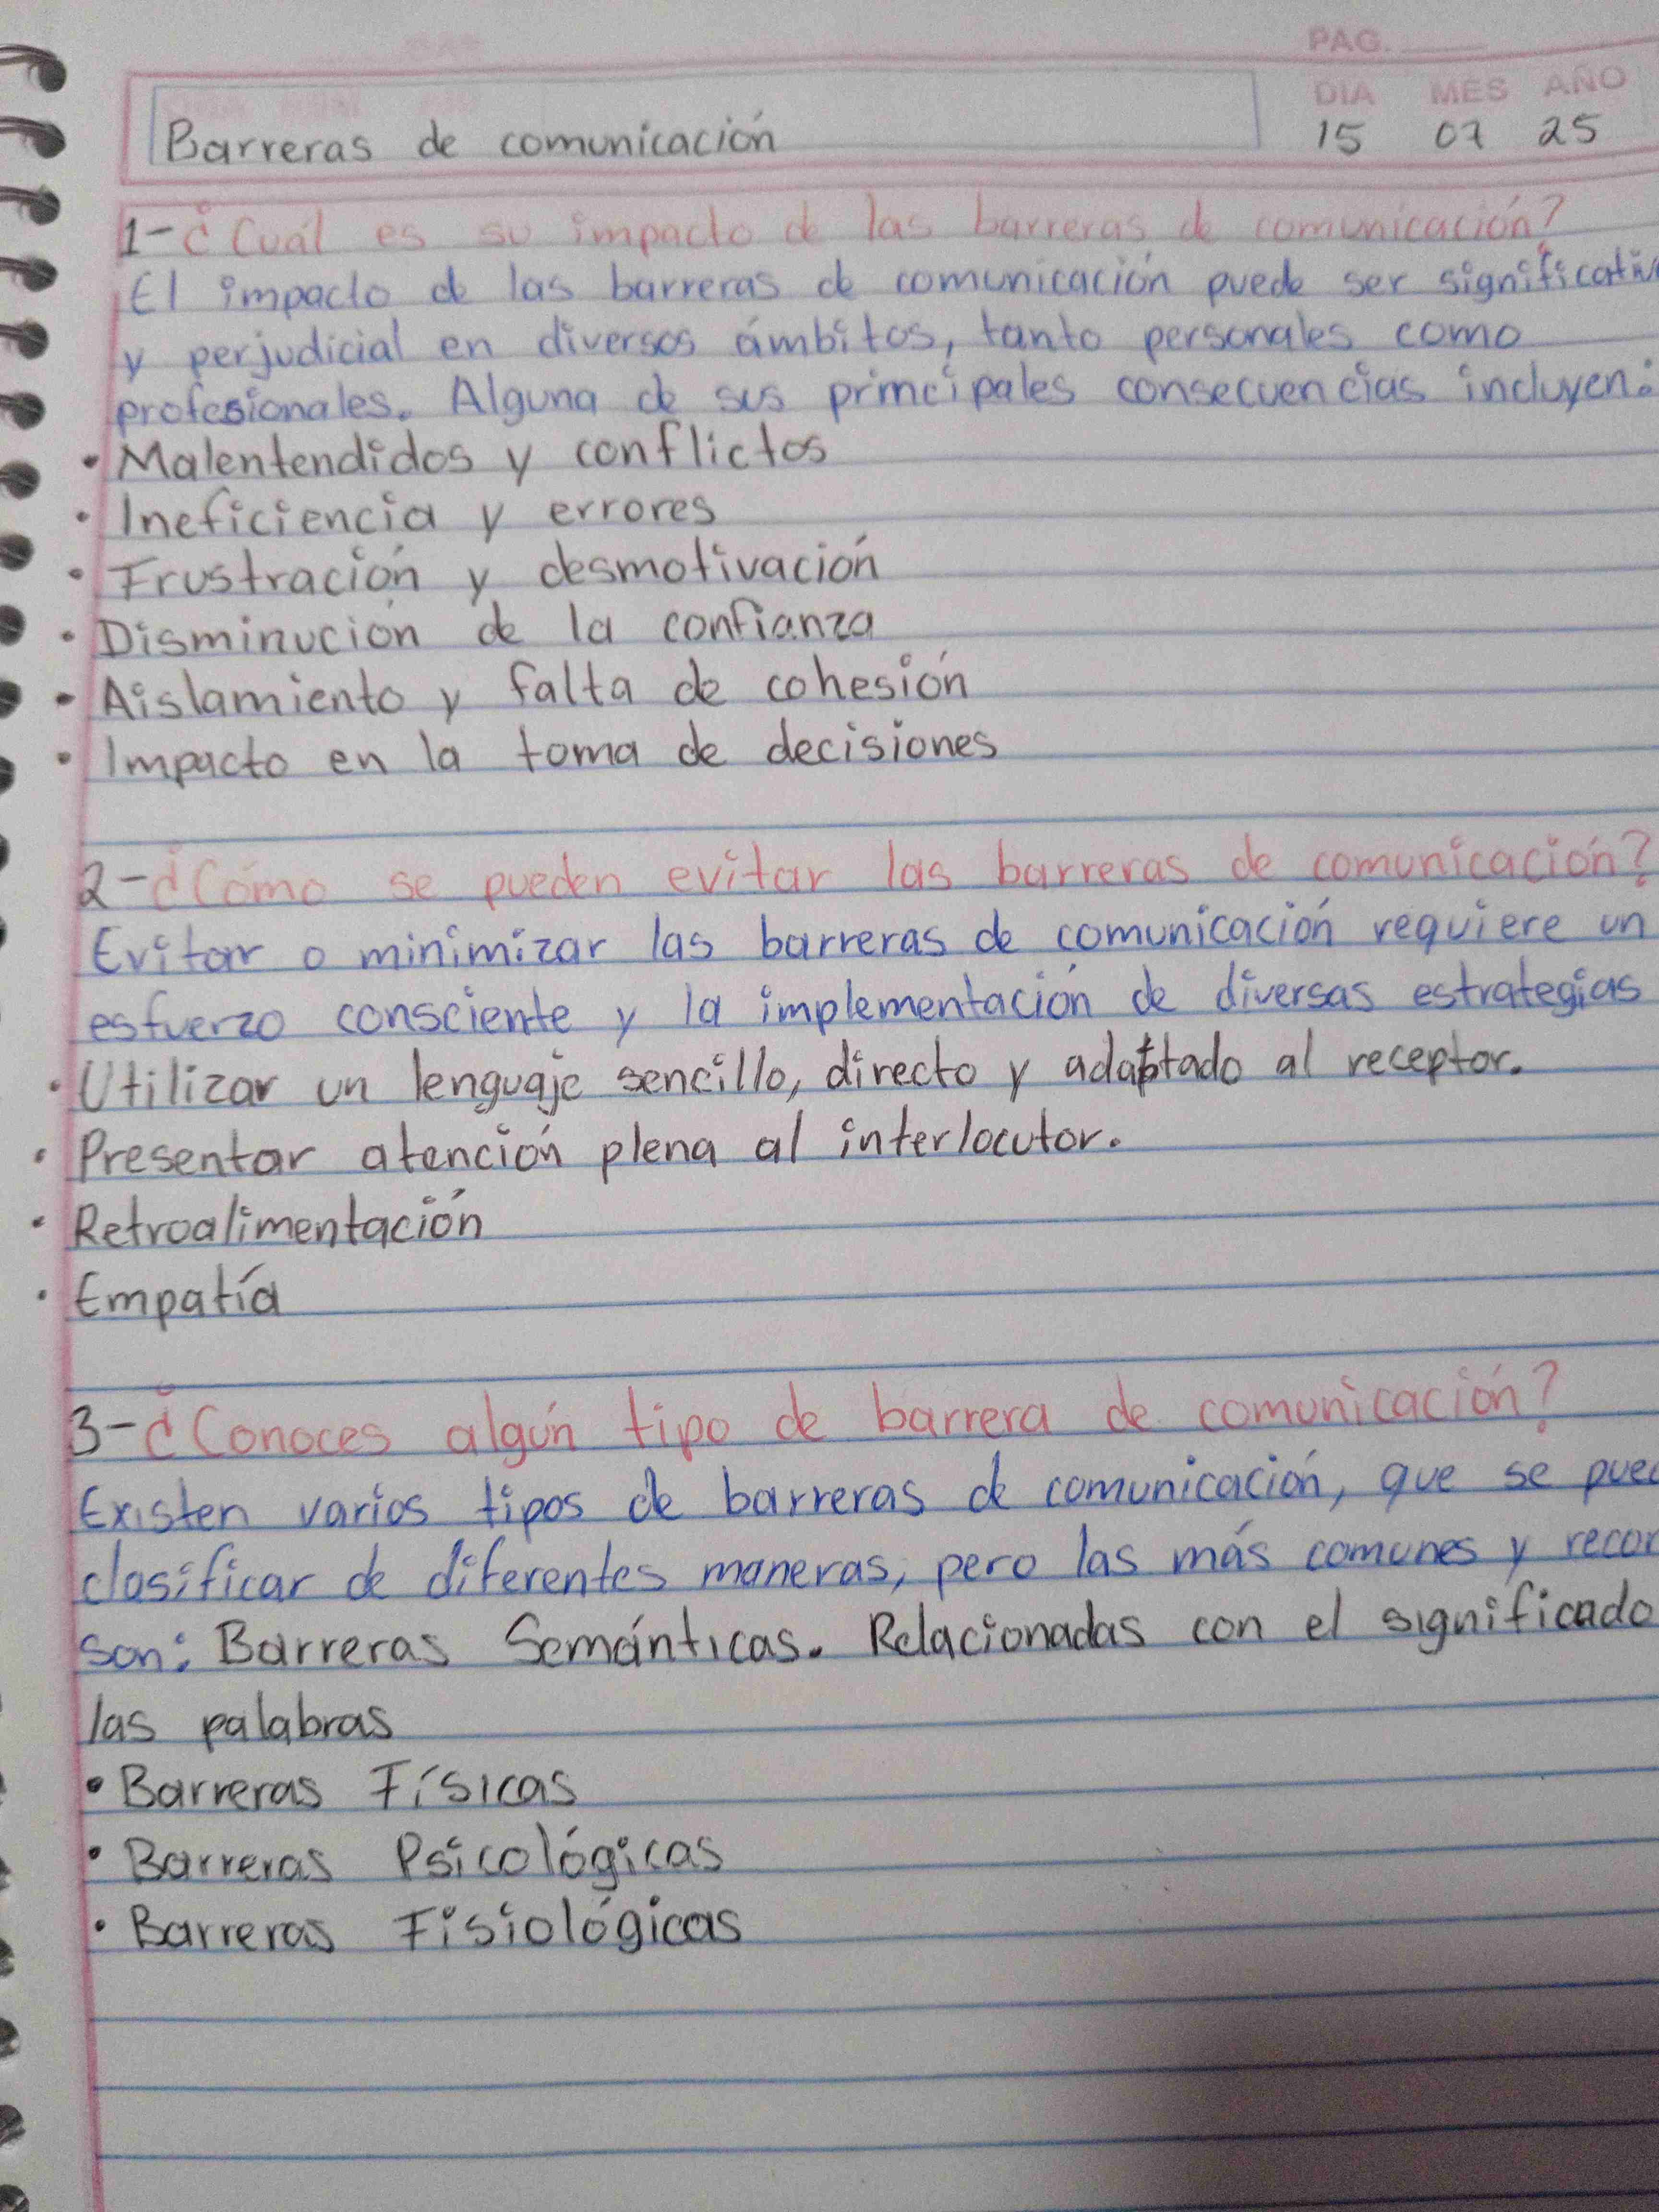 PAG.
DIA MES AÑO
Barreras de comunicación 15 07 25
1-¿Cuál es su impacto de las barreras de comunicación?
El impacto de las barreras de comunicación puede ser significativ
y perjudicial en diversos ámbitos, tanto personales como
profesionales. Alguna de sus principales consecuencias incluyen:
• Malentendidos y conflictos
• Ineficiencia y errores
• Frustración y desmotivación
• Disminución de la confianza
• Aislamiento y falta de cohesión
• Impacto en la toma de decisiones
2-¿Cómo se pueden evitar las barreras de comunicación?
Evitar o minimizar las barreras de comunicación requiere un
esfuerzo consciente y la implementación de diversas estrategias
• Utilizar un lenguaje sencillo, directo y adaptado al receptor.
• Presentar atención plena al interlocutor.
• Retroalimentación
• Empatía
3-¿Conoces algún tipo de barrera de comunicación?
Existen varios tipos de barreras de comunicación, que se pued
clasificar de diferentes maneras, pero las más comunes y recon
son: Barreras Semánticas. Relacionadas con el significado
las palabras
• Barreras Físicas
• Barreras Psicológicas
• Barreras Fisiológicas